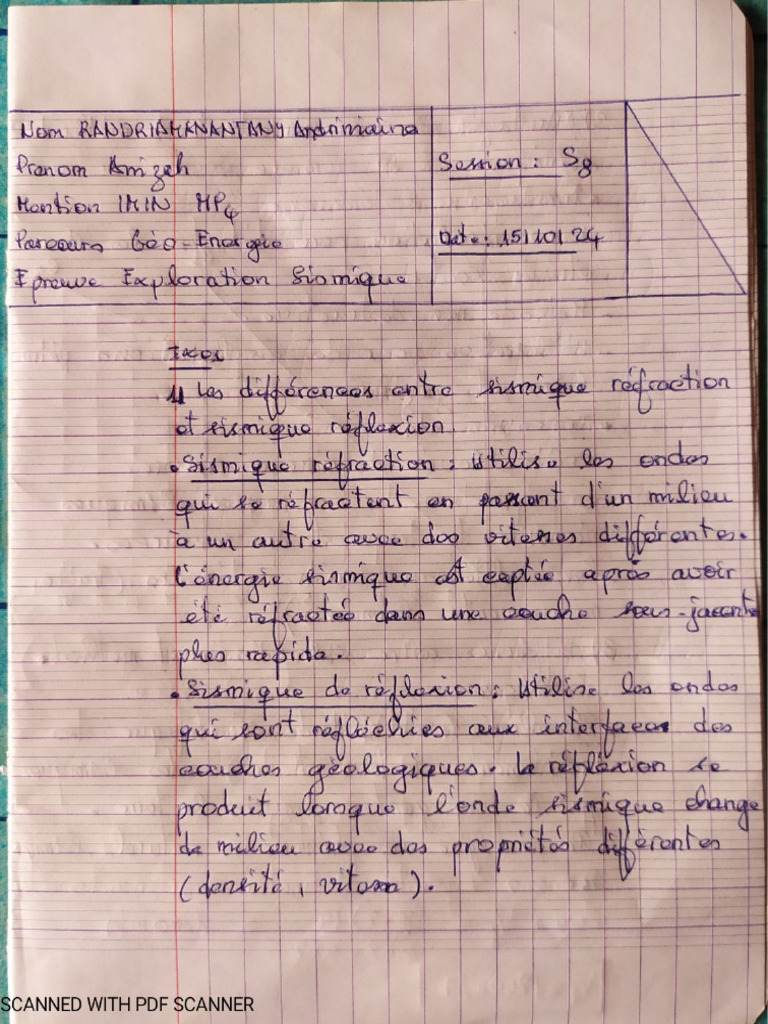 Nom RANDRIAMANANTANY Andriniaina
Prenom Anizah
Session : S8
Mention IMIN MP4
Parcours Géo-Energie
Date : 15/10/24
Epreuve Exploration Sismique
Exo1
1) Les différences entre sismique réfraction
et sismique réflexion
• Sismique réfraction : Utilise les ondes
qui se réfractent en passant d'un milieu
à un autre avec des vitesses différentes.
L'énergie sismique est captée après avoir
été réfractée dans une couche sous-jacente
plus rapide.
• Sismique de réflexion : Utilise les ondes
qui sont réfléchies aux interfaces des
couches géologiques. La réflexion se
produit lorsque l'onde sismique change
de milieu avec des propriétés différentes
(densité, vitesse).
SCANNED WITH PDF SCANNER